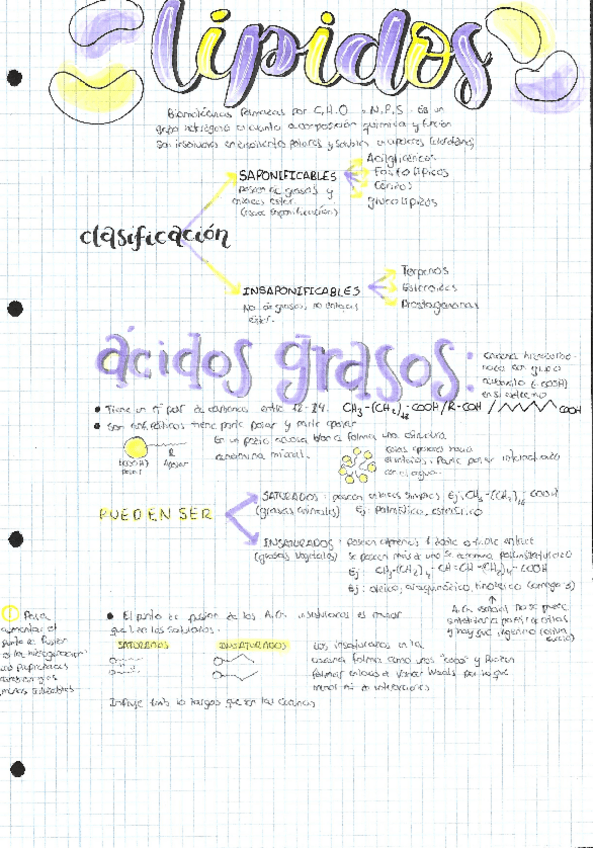 lípidos
Biomoléculas formadas por C,H,O N,P,S. Es un
grupo heterogéneo en cuanto a composición química y función
Son insolubles en disolventes polares y solubles en apolares
SAPONIFICABLES
poseen ác. grasos y
enlaces éster.
(saponificación)
Acilglicéridos
Fosfolípidos
Céridos
glucolípidos
clasificación
INSAPONIFICABLES
No ác. grasos, no enlaces
éster.
Terpenos
Esteroides
Prostaglandinas
ácidos grasos:
cadena hidrocarbo-
nada con grupo
carboxilo (-COOH)
en su extremo
• Tiene un nº par de carbonos entre 12-24. CH3-(CH2)-COOH/R-COH / COOH
• Son anfipáticos tiene parte polar y parte apolar
(COOH) R
polar Apolar
En un medio acuoso forma una
denominada micela.
colas apolares hacia
el interior. Parte polar
con el agua.
PUEDEN SER
SATURADOS: poseen enlaces simples Ej: CH3-(CH2)-COOH
(grasas animales) Ej: Palmítico, esteárico
INSATURADOS: Poseen al menos 1 doble o triple enlace
(grasas vegetales) Si poseen más de uno se denomina poliinsaturado
Ej: CH3-(CH2)-CH=CH-(CH2)-COOH
Ej: oleico, araquidónico, linoleico (omega 3)
A.G. esencial no se puede
sintetizar a partir de otras
y hay que ingerirlo
! Para
aumentar el
punto de fusión
• El punto de fusión de los A.G. insaturados es menor
que los saturados.
SATURADOS INSATURADOS
Los insaturados en la
cadena forma como unos "codos" y
formar enlaces de Vander Waals por lo que
menor nº de interacciones
Influye tmb lo largas que son las cadenas